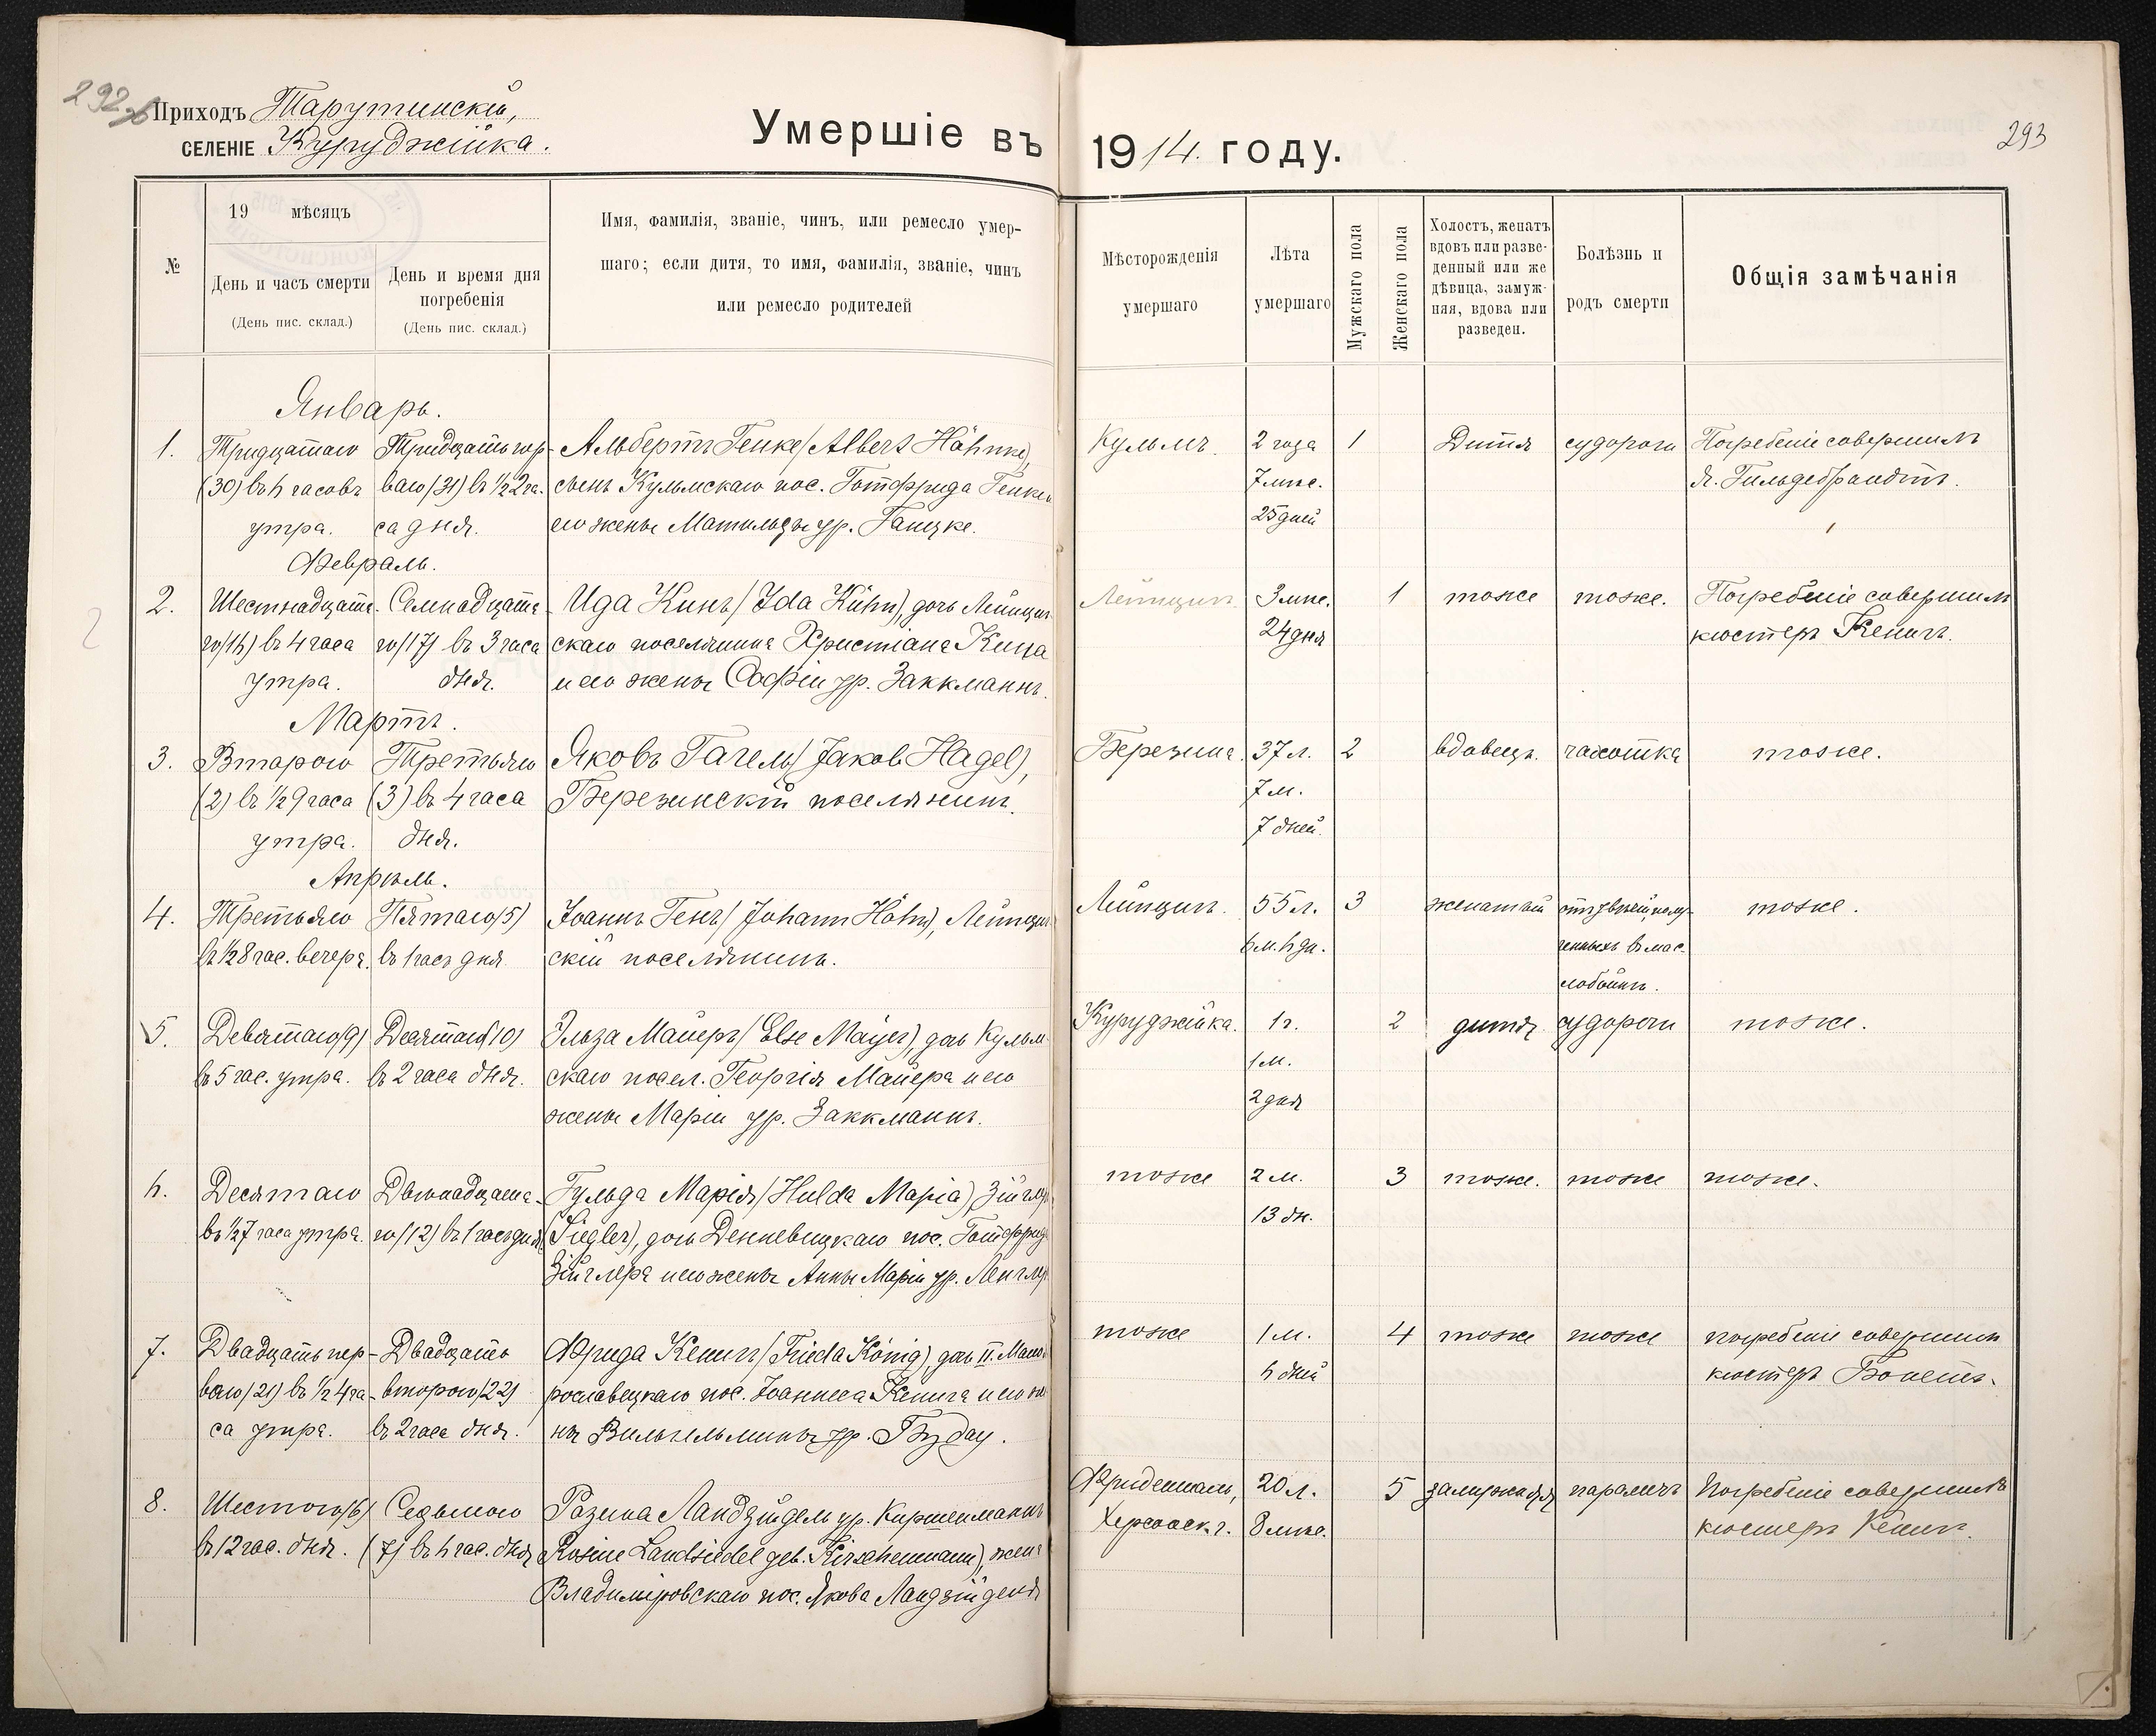 292
Приходъ Тарутинскій,
селеніе Куруджійка.
Умершіе въ 1914. году.
293
№
19 мѣсяцъ
День и часъ смерти
(День пис. склад.)
День и время дня
погребенія
(День пис. склад.)
Имя, фамилія, званіе, чинъ, или ремесло умер-
шаго; если дитя, то имя, фамилія, званіе, чинъ
или ремесло родителей
Мѣсторожденія
умершаго
Лѣта
умершаго
Мужскаго пола
Женскаго пола
Холостъ, женатъ
вдовъ или разве-
денный или же
дѣвица, замуж-
няя, вдова или
разведен.
Болѣзнь и
родъ смерти
Общія замѣчанія
Январь.
1. Тридцатаго Тридцать пер- Альбертъ Генке (Albert Hähnke), Кульмъ. 2 года 1 Дитя судороги Погребеніе совершилъ
(30) въ 6 часовъ ваго (31) въ ½ 2 ча- сынъ Кульмскаго пос. Готфрида Генке и 7 мѣс. п. Гильдебрандтъ.
утра. са дня. его жены Матильды ур. Ганцке. 25 дней
Февраль.
2. Шестнадцата- Семнадцата- Ида Кинъ (Ida Kühn), дочь Лейпциг- Лейпцигъ 3 мѣс. 1 тоже тоже. Погребеніе совершилъ
го (16) въ 4 часа го (17) въ 3 часа скаго поселянина Христіана Кина 24 дня кюстеръ Кенигъ.
утра. дня. и его жены Софіи ур. Заккманнъ.
Мартъ.
3. Второго Третьяго Яковъ Гагель (Jakob Hagel), Березина. 37 л. 2 вдовецъ. чахотка тоже.
(2) въ ½ 9 часа (3) въ 4 часа Березинскій поселянинъ. 7 м.
утра. дня. 7 дней.
Апрѣль.
4. Третьяго Пятаго (5) Іоаннъ Генъ (Johann Höhn), Лейпциг- Лейпцигъ. 55 л. 3 женатый полу- тоже.
въ ½ 8 час. вечера. въ 1 часъ дня. скій поселянинъ. 6 м. 6 дн. ченныхъ въ мас-
лобойнѣ.
5. Девятаго (9) Десятаго (10) Эльза Майеръ (Else Mayer), дочь Кульм- Куруджійка. 1 г. 2 дитя судороги тоже.
въ 5 час. утра. въ 2 часа дня. скаго посел. Георгія Майера и его 1 м.
жены Маріи ур. Заккманнъ. 2 дня
6. Десятаго Двѣнадцата- Гульда Марія (Hulda Maria), Зиглеръ тоже 2 м. 3 тоже. тоже тоже.
въ ½ 7 часа утра. го (12) въ 1 часъ дня (Siegler), дочь Денневицкаго пос. Готфрида 13 дн.
Зиглера и его жены Анны Маріи ур.
7. Двадцать пер- Двадцать Фрида Кенигъ (Frieda König), дочь II. Мало- тоже 1 м. 4 тоже тоже погребеніе совершилъ
ваго (21) въ ½ 4 ча- второго (22) рославецкаго пос. Іоаннеса Кенига и его же- 6 дней кюстеръ
са утра. въ 2 часа дня. ны Вильгельмины ур.
8. Шестого (6) Седьмого Розина Ландзидель ур. Киршенманнъ Фриденталь, 20 л. 5 замужняя параличъ Погребеніе совершилъ
въ 12 час. дня. (7) въ 6 час. дня (Rosine Landsiedel geb. Kirschenmann), жена Херсонск. г. 8 мѣс. кюстеръ Кенигъ.
Владиміровскаго пос. Якова Ландзиделя